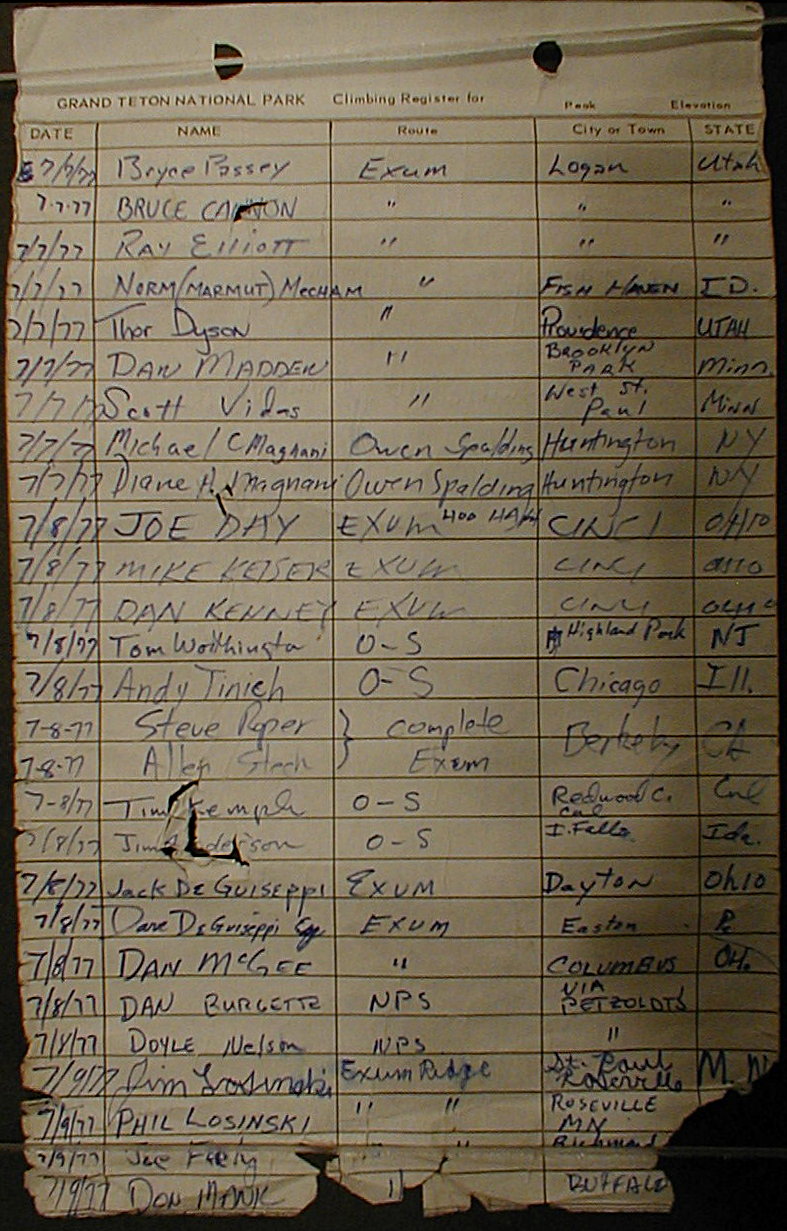 GRAND TETON NATIONAL PARK Climbing Register for Peak Elevation
DATE NAME Route City or Town STATE
7/7/77 Bryce Passey Exum Logan Utah
7-7-77 BRUCE CANNON " " "
7/7/77 RAY Elliott " " "
7/7/77 NORM (MARMUT) MECHAM " FISH HAVEN ID.
7/7/77 Thor Dyson " Providence UTAH
7/7/77 DAN MADDEN " BROOKLYN PARK Minn.
7/7/77 Scott Vidas " West St. Paul MINN
7/7/77 Michael C Magnani Owen Spalding Huntington NY
7/7/77 Diane H. Magnani Owen Spalding Huntington NY
7/8/77 JOE DAY EXUM CINCI OHIO
7/8/77 MIKE KEISER EXUM CINCI OHIO
7/8/77 DAN KENNEY EXUM CINCI OHIO
7/8/77 Tom Worthington O-S Highland Park NJ
7/8/77 Andy Tinich O-S Chicago Ill.
7-8-77 Steve Roper } Complete Berkeley CA
7-8-77 Allen Steck } Exum
7-8/77 Tim Kemple O-S Redwood C. Cal Cal
7/8/77 Jim Anderson O-S I. Falls Ida.
7/8/77 Jack DeGuiseppi EXUM Dayton Ohio
7/8/77 Dave DeGuiseppi EXUM Easton Pa
7/8/77 DAN McGEE " COLUMBUS OH.
7/8/77 DAN BURGETTE NPS VIA PETZOLDTS
7/8/77 DOYLE Nelson NPS "
7/9/77 Jim Losinski Exum Ridge St. Paul Roseville M.N
7/9/77 PHIL LOSINSKI " " ROSEVILLE MN
7/9/77 Joe " Richmond
7/9/77 DON MANK " BUFFALO